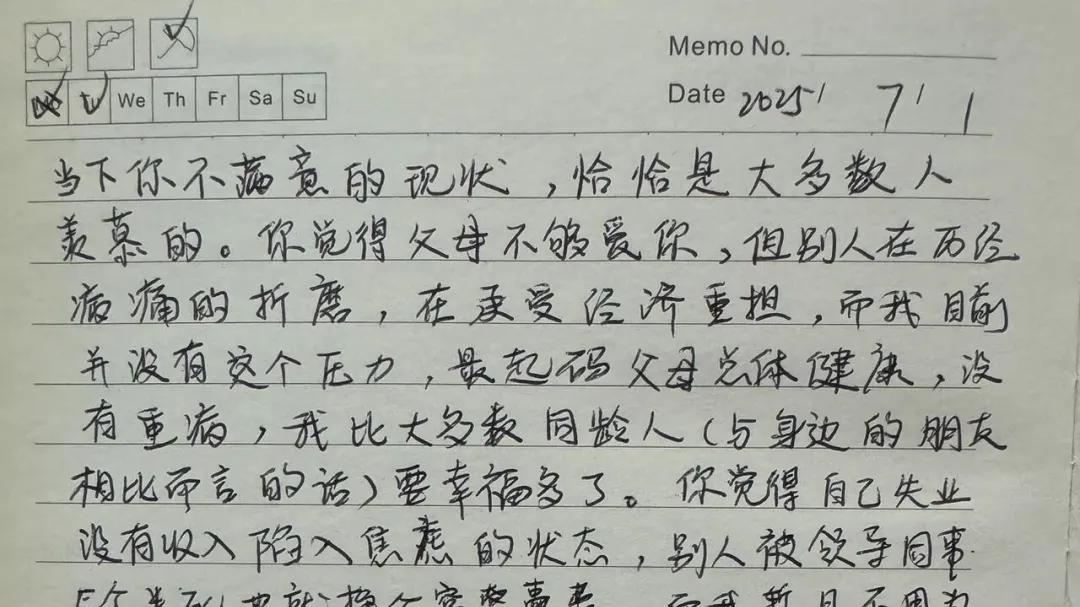 Memo No.
We Th Fr Sa Su
Date 2025/ 7/ 1
当下你不满意的现状，恰恰是大多数人
羡慕的。你觉得父母不够爱你，但别人在历经
病痛的折磨，在承受经济重担，而我目前
并没有这个压力，最起码父母总体健康，没
有重病，我比大多数同龄人（与身边的朋友
相比而言的话）要幸福多了。你觉得自己失业
没有收入陷入焦虑的状态，别人被领导同事